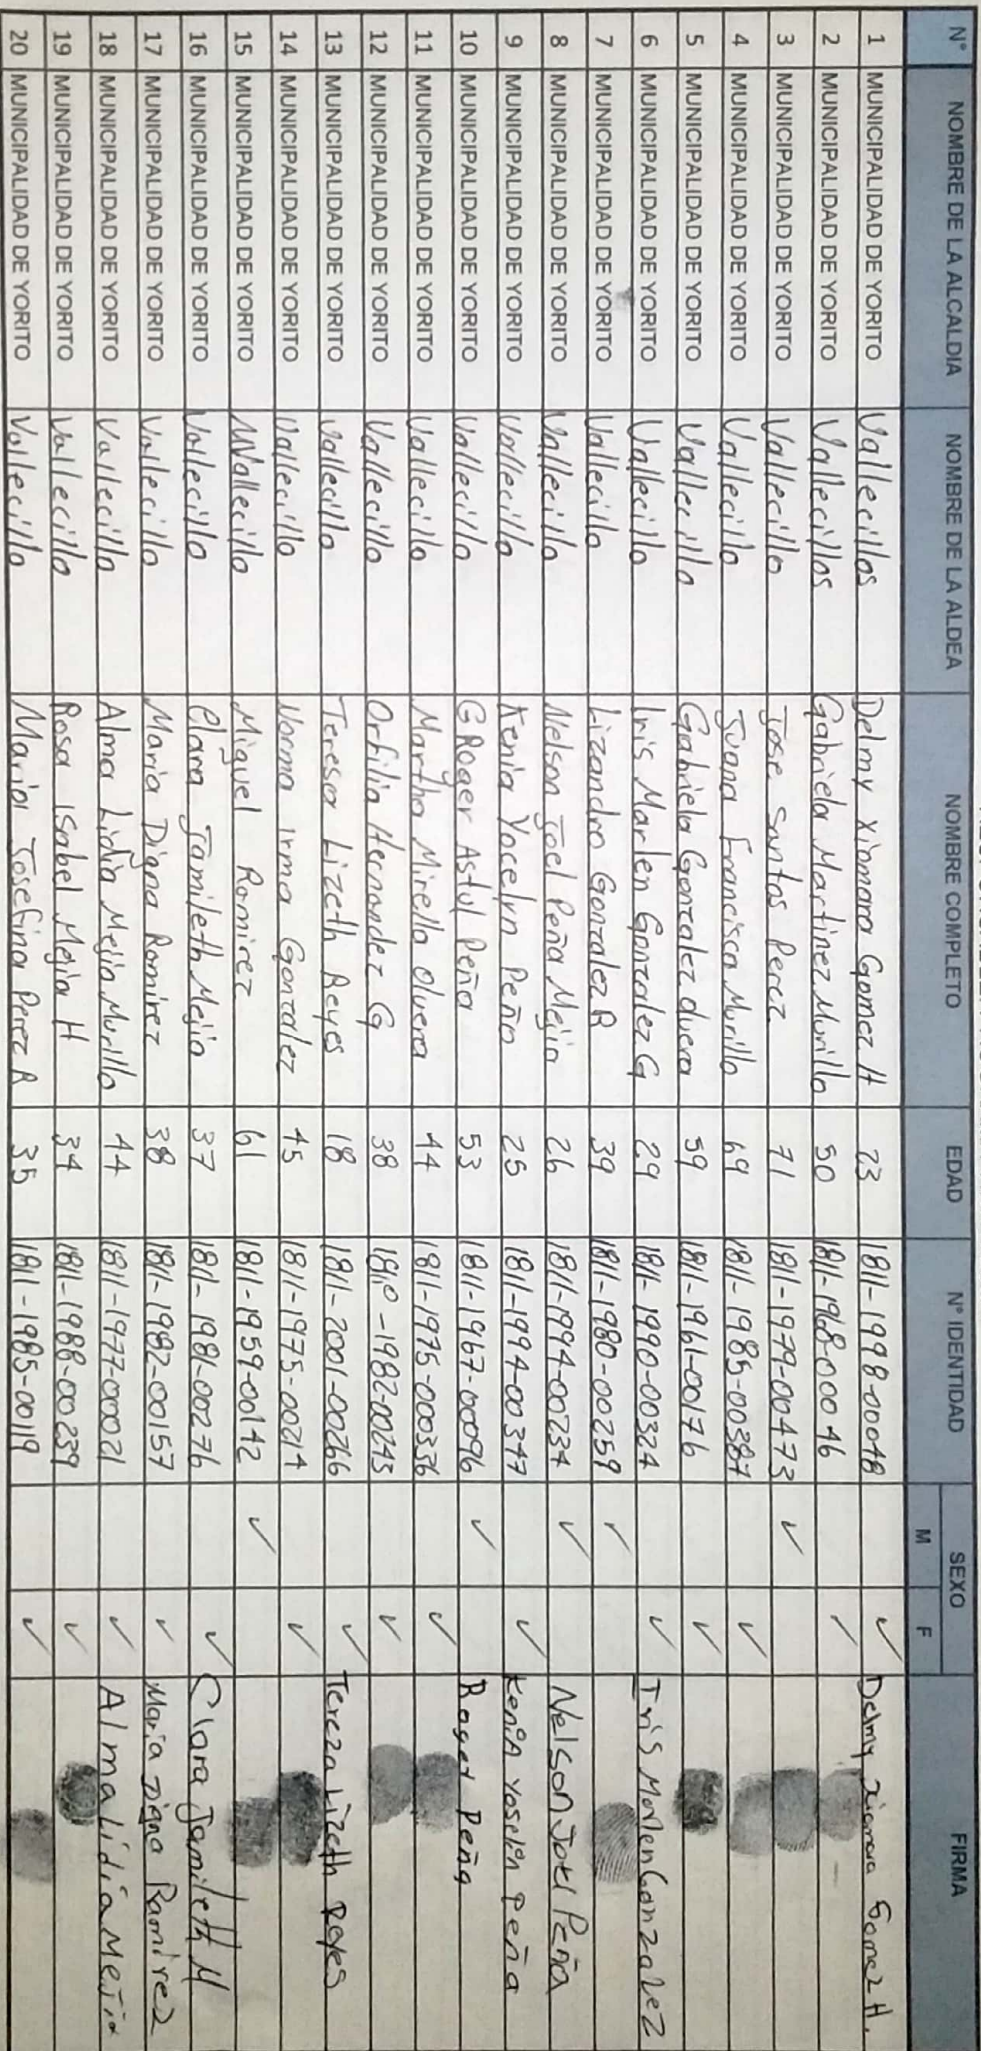 N° NOMBRE DE LA ALCALDIA NOMBRE DE LA ALDEA NOMBRE COMPLETO EDAD N° IDENTIDAD SEXO FIRMA
M F
1 MUNICIPALIDAD DE YORITO Vallecillos Delmy Xiomara Gomez H 23 1811-1998-00048 ✓ Delmy Xiomara Gomez H.
2 MUNICIPALIDAD DE YORITO Vallecillos Gabriela Martinez Murillo 50 1811-1968-00046 ✓
3 MUNICIPALIDAD DE YORITO Vallecillo Jose Santos Perez 71 1811-1979-00473 ✓
4 MUNICIPALIDAD DE YORITO Vallecillo Juana Francisca Murillo 69 1811-1985-00387 ✓
5 MUNICIPALIDAD DE YORITO Vallecillo Gabriela Gonzalez 59 1811-1961-00176 ✓
6 MUNICIPALIDAD DE YORITO Vallecillo Iris Marlen Gonzalez G 29 1811-1990-00324 ✓ Iris Marlen Gonzalez
7 MUNICIPALIDAD DE YORITO Vallecillo Lizandro Gonzalez R 39 1811-1980-00259 ✓
8 MUNICIPALIDAD DE YORITO Vallecillo Nelson Joel Peña Mejia 26 1811-1994-00234 ✓ Nelson Joel Peña
9 MUNICIPALIDAD DE YORITO Vallecillo Kenia Yocelyn Peña 25 1811-1994-00347 ✓ Kenia Yoselin Peña
10 MUNICIPALIDAD DE YORITO Vallecillo Roger Astul Peña 53 1811-1967-00096 ✓ Roger Peña
11 MUNICIPALIDAD DE YORITO Vallecillo Martha Mirella Olvera 44 1811-1975-00336 ✓
12 MUNICIPALIDAD DE YORITO Vallecillo Orfilia Hernandez G 38 1810-1982-00243 ✓
13 MUNICIPALIDAD DE YORITO Vallecillo Teresa Lizeth Reyes 18 1811-2001-00266 ✓ Tereza Lizeth Reyes
14 MUNICIPALIDAD DE YORITO Vallecillo Norma Irma Gonzalez 45 1811-1975-00214 ✓
15 MUNICIPALIDAD DE YORITO Vallecillo Miguel Ramirez 61 1811-1959-00142 ✓
16 MUNICIPALIDAD DE YORITO Vallecillo Clara Jamileth Mejia 37 1811-1981-00276 ✓ Clara Jamileth M
17 MUNICIPALIDAD DE YORITO Vallecillo Maria Digna Ramirez 38 1811-1982-00157 ✓ Maria Digna Ramirez
18 MUNICIPALIDAD DE YORITO Vallecillo Alma Lidia Mejia Murillo 44 1811-1977-00021 ✓ Alma Lidia Mejia
19 MUNICIPALIDAD DE YORITO Vallecillo Rosa Isabel Mejia H 34 1811-1988-00239 ✓
20 MUNICIPALIDAD DE YORITO Vallecillo Maria Josefina Perez R 35 1811-1985-00119 ✓